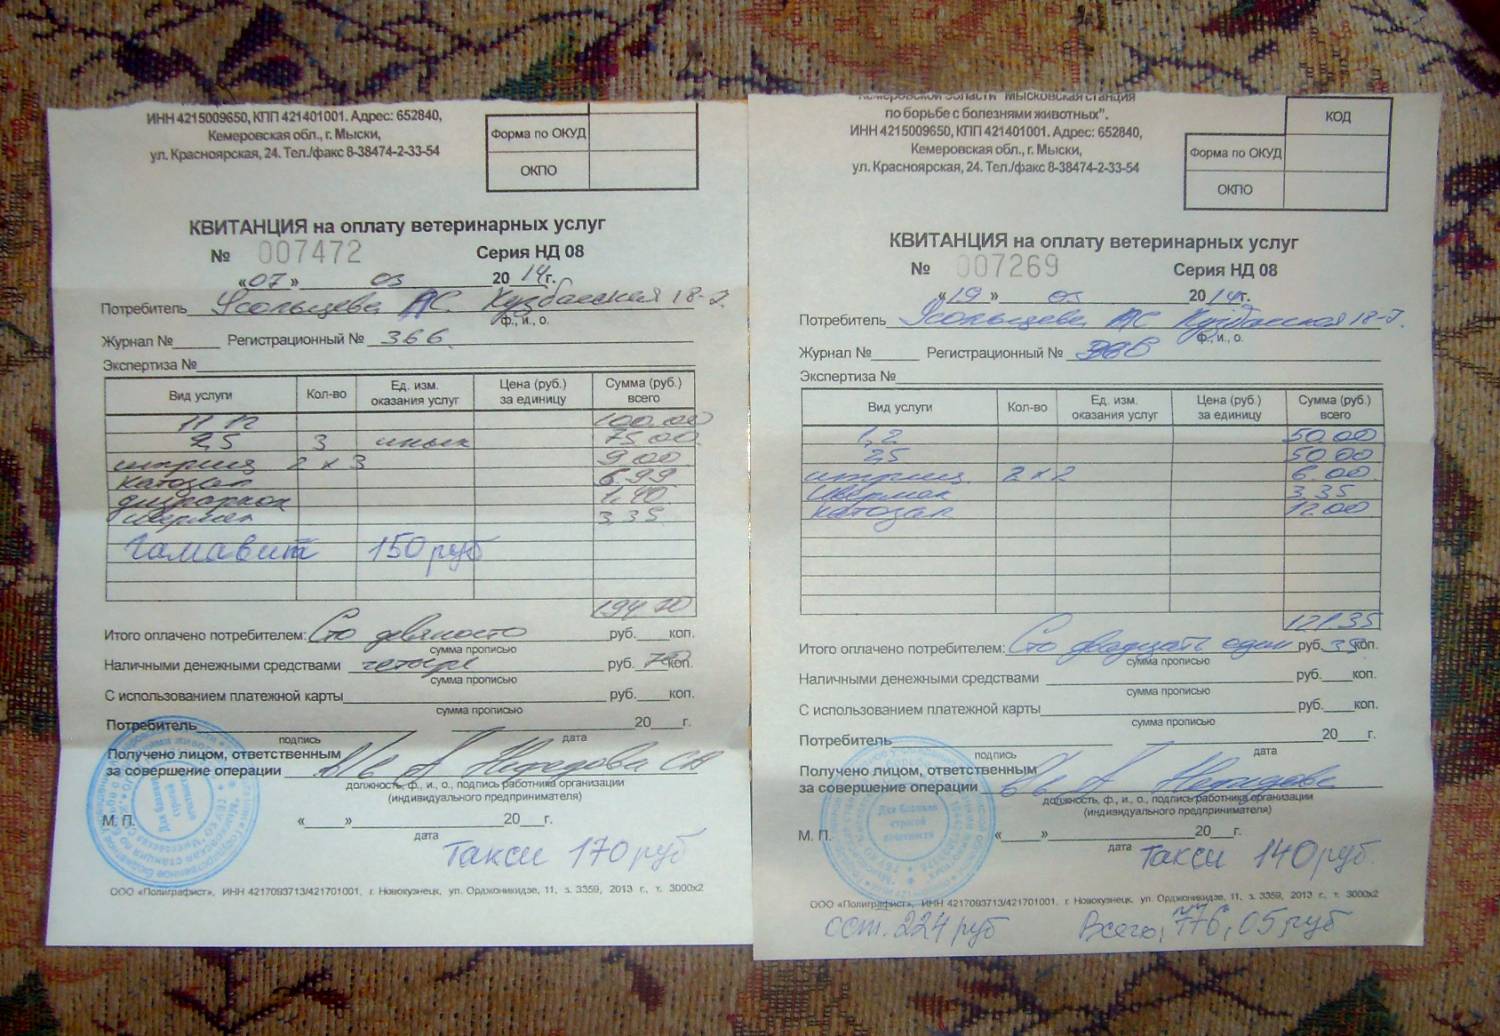 ИНН 4215009650, КПП 421401001. Адрес: 652840,
Кемеровская обл., г. Мыски,
ул. Красноярская, 24. Тел./факс 8-38474-2-33-54
Форма по ОКУД
ОКПО
КВИТАНЦИЯ на оплату ветеринарных услуг
№ 007472 Серия НД 08
«07» 03 2014г.
Потребитель Усольцева АС. Кузбасская 18-2.
ф., и., о.
Журнал №______ Регистрационный № 366.
Экспертиза №
Вид услуги Кол-во Ед. изм. оказания услуг Цена (руб.) за единицу Сумма (руб.) всего
100.00
2,5 3 75.00
шприц 2 x 3 9.00
катозал 6.99
1.40
ивермек 3.35
Гамавит 150 руб
194 70
Итого оплачено потребителем: Сто девяносто руб.____коп.
сумма прописью
Наличными денежными средствами четыре руб. 70 коп.
сумма прописью
С использованием платежной карты руб.____коп.
сумма прописью
Потребитель 20___г.
подпись дата
Получено лицом, ответственным
за совершение операции
должность, ф., и., о., подпись работника организации
(индивидуального предпринимателя)
М. П. «_____» 20___г.
дата
Такси 170 руб
ООО «Полиграфист», ИНН 4217093713/421701001, г. Новокузнецк, ул. Орджоникидзе, 11, з. 3359, 2013 г., т. 3000х2
Кемеровской области "Мысковская станция
по борьбе с болезнями животных".
ИНН 4215009650, КПП 421401001. Адрес: 652840,
Кемеровская обл., г. Мыски,
ул. Красноярская, 24. Тел./факс 8-38474-2-33-54
КОД
Форма по ОКУД
ОКПО
КВИТАНЦИЯ на оплату ветеринарных услуг
№ 007269 Серия НД 08
«19» 03 2014г.
Потребитель Усольцева АС Кузбасская 18-2.
ф., и., о.
Журнал №______ Регистрационный № 366
Экспертиза №
Вид услуги Кол-во Ед. изм. оказания услуг Цена (руб.) за единицу Сумма (руб.) всего
1,2 50.00
2,5 50.00
шприц 2 x 2 6.00
ивермек 3.35
катозал 12.00
121.35
Итого оплачено потребителем: Сто двадцать один руб. 35 коп.
сумма прописью
Наличными денежными средствами руб.____коп.
сумма прописью
С использованием платежной карты руб.____коп.
сумма прописью
Потребитель 20___г.
подпись дата
Получено лицом, ответственным
за совершение операции
должность, ф., и., о., подпись работника организации
(индивидуального предпринимателя)
М. П. «_____» 20___г.
дата
Такси 140 руб.
ООО «Полиграфист», ИНН 4217093713/421701001, г. Новокузнецк, ул. Орджоникидзе, 11, з. 3359, 2013 г., т. 3000х2
сот. 224 руб Всего, 776,05 руб